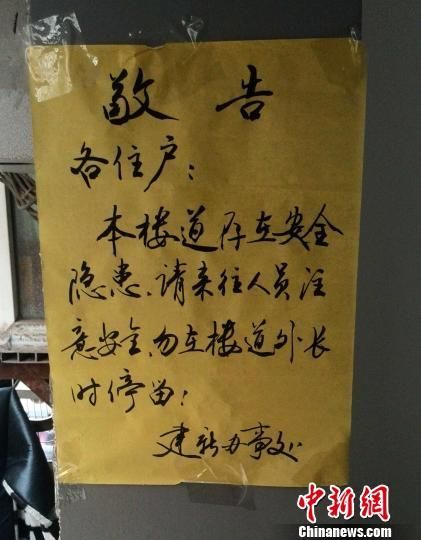 敬 告
各住户：
本楼道存在安全
隐患、请来往人员注
意安全、勿在楼道外长
时停留：
建新办事处
中新網
Chinanews.com